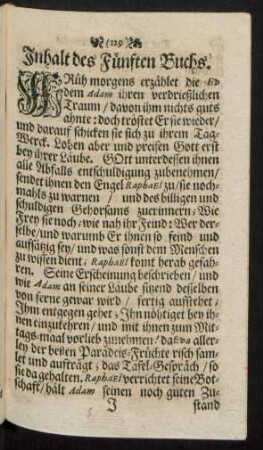 (129)
Inhalt des Fünfften Buchs.
FRüh morgens erzählet die Ev
dem Adam ihren verdrießlichen
Traum / davon ihm nichts guts
ahnte: doch tröstet Er sie wieder/
und darauf schicken sie sich zu ihrem Tag-
Werck. Lohen aber und preisen Gott erst
bey ihrer Läube. GOtt unterdessen ihnen
alle Abfalls entschuldigung zubenehmen/
sendet ihnen den Engel RaphaEl zu/sie noch-
mahls zu warnen / und des billigen und
schuldigen Gehorsams zuerinnern: Wie
Frey sie noch; wie nah ihr Feind: Wer der-
selbe/ und warumb Er ihnen so feind und
auffsätzig sey/ und was sonst dem Menschen
zu wissen dient; RaphaEl komt herab gefah-
ren. Seine Erscheinung beschrieben/ und
wie Adam an seiner Läube sitzend desselben
von ferne gewar wird / fertig auffstehet;
Ihm entgegen gehet; Ihn nöhtiget bey ih-
nen einzukehren/ und mit ihnen zum Mit-
tags-maal vorlieb zunehmen/ da Eva aller-
ley der besten Paradeis-Früchte risch sam-
let und aufträgt; das Tafel-Gespräch / so
sie da gehalten. RaphaEl verrichtet seine Bot-
schaft/ hält Adam seinen noch guten Zu-
J stand